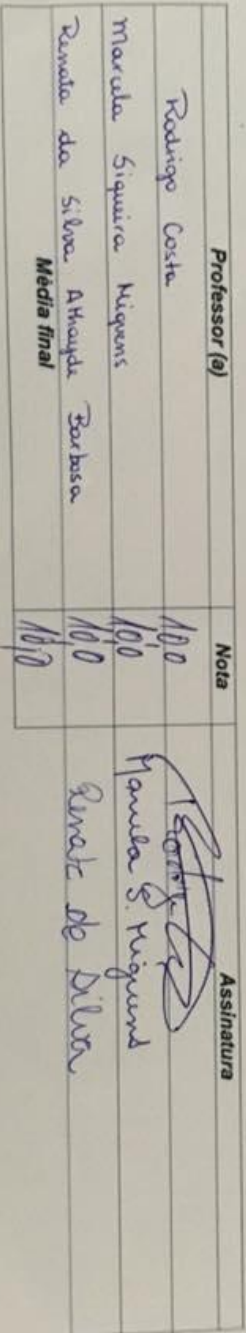 Professor (a) Nota Assinatura
Rodrigo Costa 10,0
Marcela Siqueira Miguens 10,0 Marcela S. Miguens
Renata da Silva Athayde Barbosa 10,0 Renata da Silva
Média final 10,0